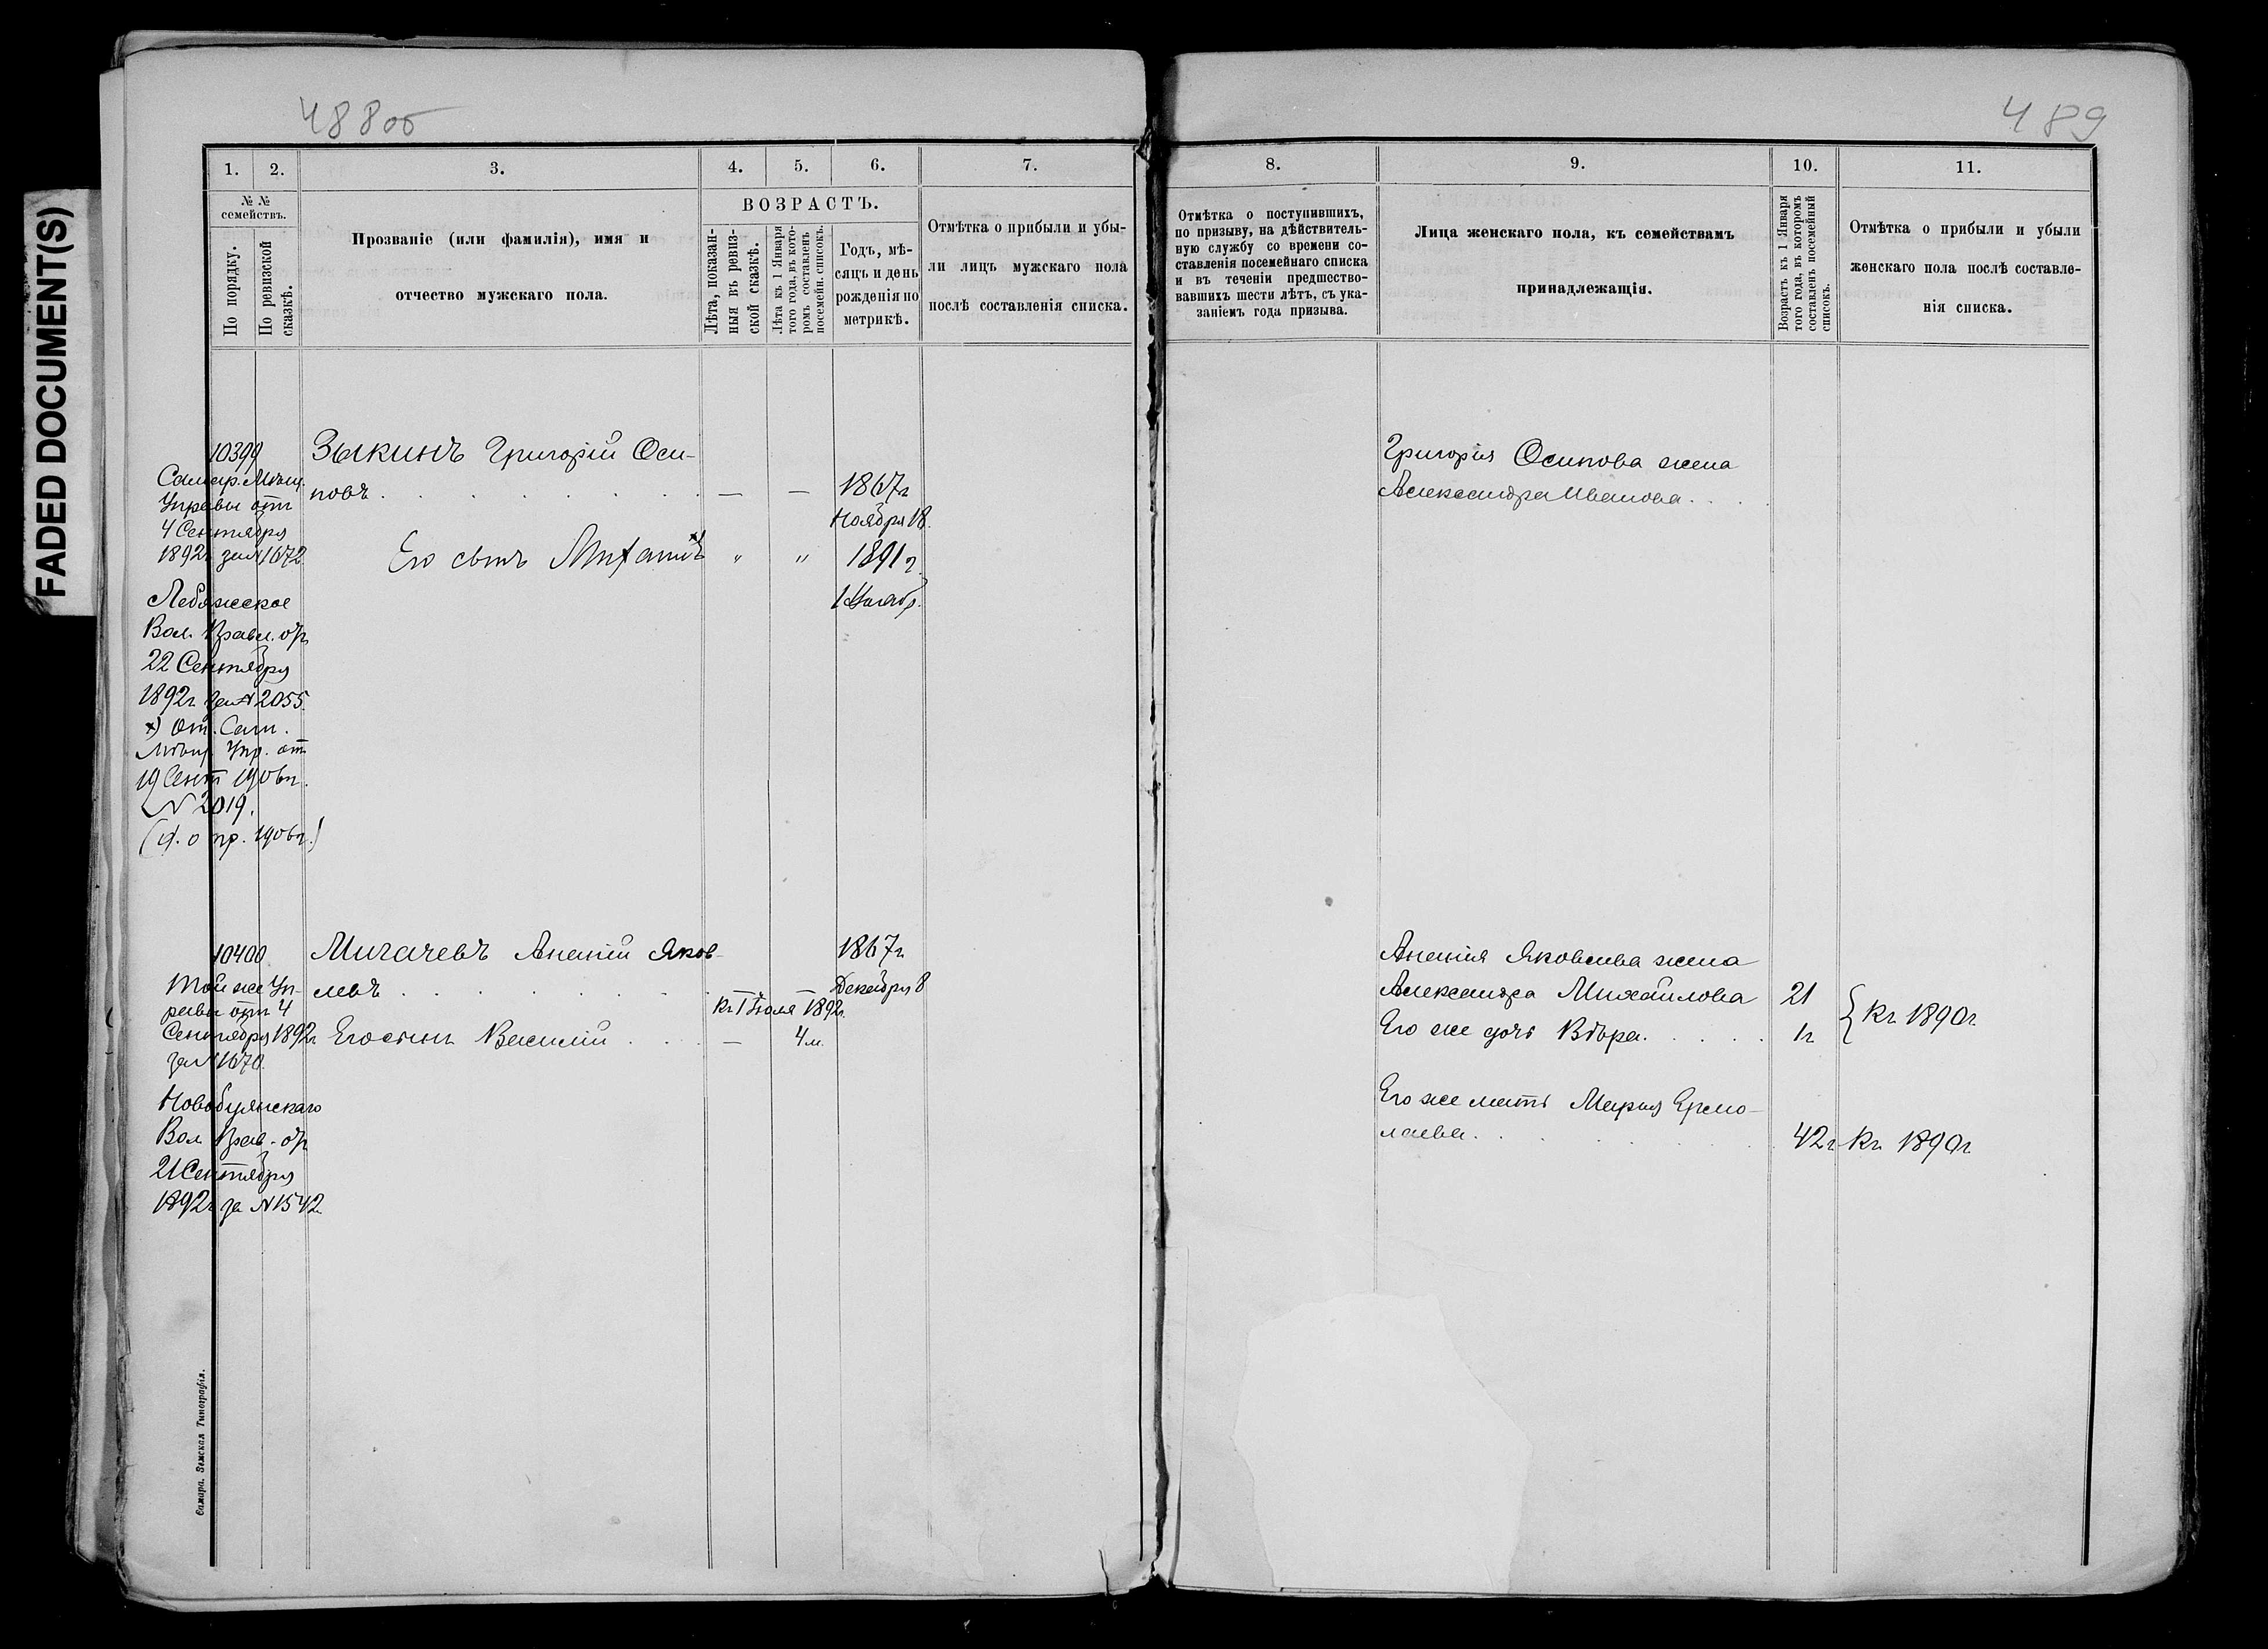 FADED DOCUMENT(S)
488об
1.
2.
3.
4.
5.
6.
7.
№ №
семействъ.
По порядку.
По ревизской
сказкѣ.
Прозваніе (или фамилія), имя и
отчество мужскаго пола.
ВОЗРАСТЪ.
Лѣта, показан-
ныя въ ревиз-
ской сказкѣ.
Лѣта къ 1 Января
того года, въ кото-
ромъ составленъ
посемейн. списокъ.
Годъ, мѣ-
сяцъ и день
рожденія по
метрикѣ.
Отмѣтка о прибыли и убы-
ли лицъ мужскаго пола
послѣ составленія списка.
10399
Самар. Мѣщ.
Управы отъ
4 Сентября
1892г за № 1672
Лебяжское
Вол. Правл. отъ
22 Сентября
1892г за № 2055.
х) От. Сам.
Мѣщ. Упр. от
19 Сент 1906г.
№ 2019.
пр. 1906г.)
Зыкинъ Григорій Оси-
повъ . . . . . . . — — 1867г
Ноября 18.
Его сынъ Михаилъ х) " " 1891г.
1 Ноябр.
10400
Той же Уп-
равы отъ 4
Сентября 1892г
за № 1670.
Новобуянскаго
Вол. Прав. отъ
21 Сентября
1892г за № 1542
Мигачевъ Ананій Яков-
левъ . . . . . . — — 1867г
Декабря 8
Къ 1 Іюля 1892г.
Его сынъ Василій . . . — 4 м.
Самара. Земская Типографія.
489
8.
9.
10.
11.
Отмѣтка о поступившихъ,
по призыву, на дѣйствитель-
ную службу со времени со-
ставленія посемейнаго списка
и въ теченіи предшество-
вавшихъ шести лѣтъ, съ ука-
заніемъ года призыва.
Лица женскаго пола, къ семействамъ
принадлежащія.
Возрастъ къ 1 Января
того года, въ которомъ
составленъ посемейный
списокъ.
Отмѣтка о прибыли и убыли
женскаго пола послѣ составле-
нія списка.
Григорія Осипова жена
Александра Иванова. . .
Ананія Яковлева жена
Александра Михайлова 21
Его же дочь Вѣра. . . . . 1г
Къ 1890г
Его же мать Марья Ермо-
лаева. . . . . 42г Къ 1890г